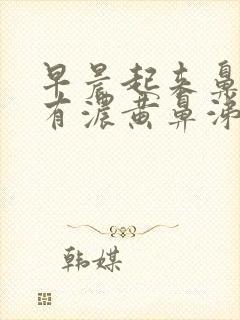 早晨起来鼻
有浓黄鼻涕
韩媒